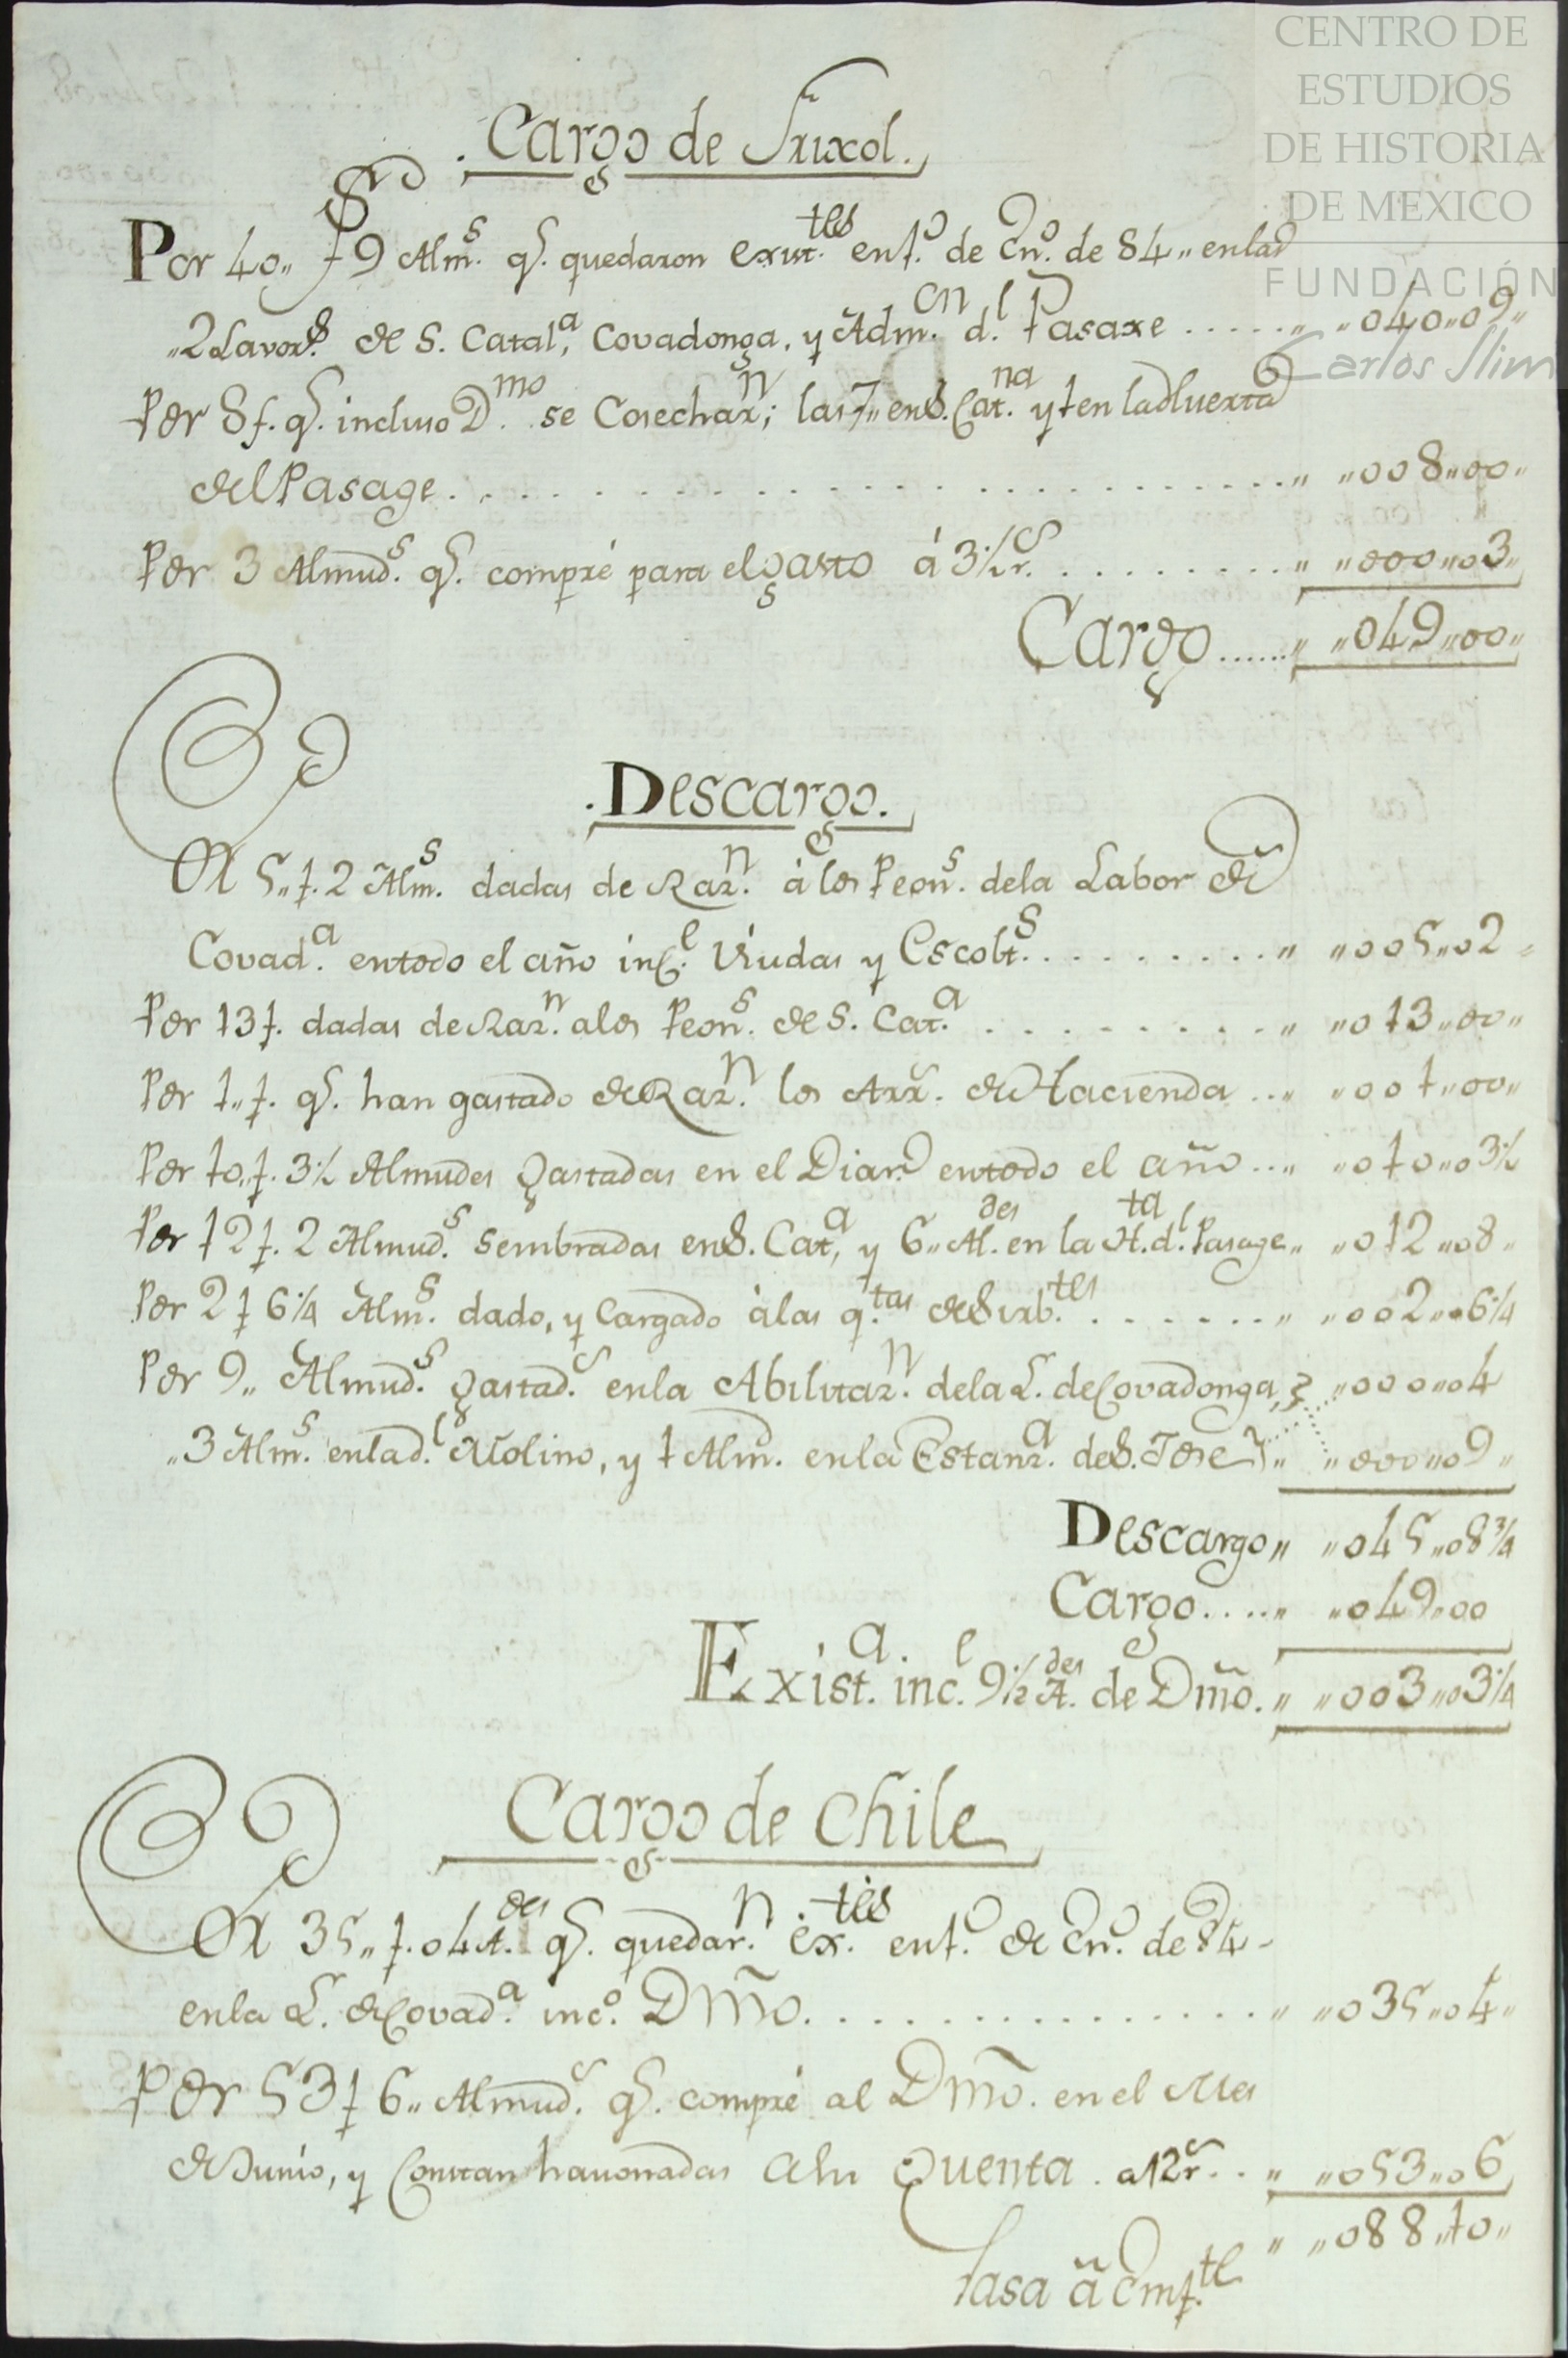 CENTRO DE
ESTUDIOS
DE HISTORIA
DE MEXICO
FUNDACIÓN
Carlos Slim
Cargo de Frixol.
Por 40,, f 9 Almˢ. qͤ. quedaron exisᵗᵉˢ. en 1º. de Enº. de 84,, en las
,,2 Lavorˢ. de S. Catalᵃ, Covadonga, y Admᵒⁿ. dˡ. Pasaxe ..... ,, ,,040,,09,,
Por 8 f. qͤ. incluso Dᵐᵒ. se Cosecharⁿ; las 7,, en S. Catⁿᵃ. y 1 en la Huerta
del Pasage. . . . . . . . . . ,, ,,008,,00,,
Por 3 Almudˢ. qͤ. compré para el gasto á 3½ rˢ. . . . . . . ,, ,,000,,03,,
Cargo ...... ,, ,,049,,00,,
Descargo.
A 5,, f. 2 Almˢ. dadas de Razⁿ. á los Peonˢ. de la Labor de
Covadᵃ. en todo el año incˡ. Viudas y Escoltˢ. . . . . . . ,, ,,005,,02
Por 13 f. dadas de Razⁿ. a los Peonˢ. de S. Catᵃ. . . . . . . ,, ,,013,,00,,
Por 1,, f. qͤ. han gastado de Razⁿ. los Arrˢ. de Hacienda ... ,, ,,001,,00,,
Por 10,, f. 3½ Almudes gastadas en el Diarº en todo el año ... ,, ,,010,,03½
Por 12 f. 2 Almudˢ. sembradas en S. Catᵃ, y 6,, Alᵈᵉˢ. en la Hᵗᵃ. dˡ. Pasage ,, ,,012,,08,,
Por 2 f 6¼ Almˢ. dado, y Cargado á las qᵗᵃˢ. de Sirbᵗᵉˢ. . . . . . . ,, ,,002,,06¼
Por 9,, Almudˢ. gastadˢ. en la Abilitazⁿ. de la L. de Covadonga, ,,000,,04
,,3 Almˢ. en la dˡ. Molino, y 1 Alm. en la Estanzᵃ. de S. Jose ,, ,,000,,09,,
Descargo ,, ,,045,,08¾
Cargo ..... ,, ,,049,,00
Existᵃ. incˡ. 9½ Aᵈᵉˢ. de Dm̃o. ,, ,,003,,03¼
Cargo de Chile
A 35,, f. 04 Aᵈᵉˢ. qͤ. quedarⁿ. exᵗᵉˢ. en 1º. de Enº. de 84
en la L. de Covadᵃ. incº. Dm̃o. . . . . . . . . ,, ,,035,,04,,
Por 53 f 6,, Almudˢ. qͤ. compré al Dm̃o. en el Mes
de Junio, y Constan havonadas a su Quenta a 12 rˢ. . . ,, ,,053,,06
,, ,,088,,10,,
Pasa